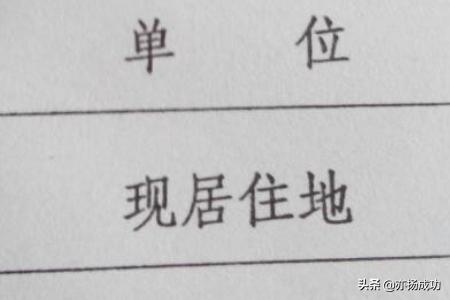 单 位
现居住地
头条 @亦扬成功